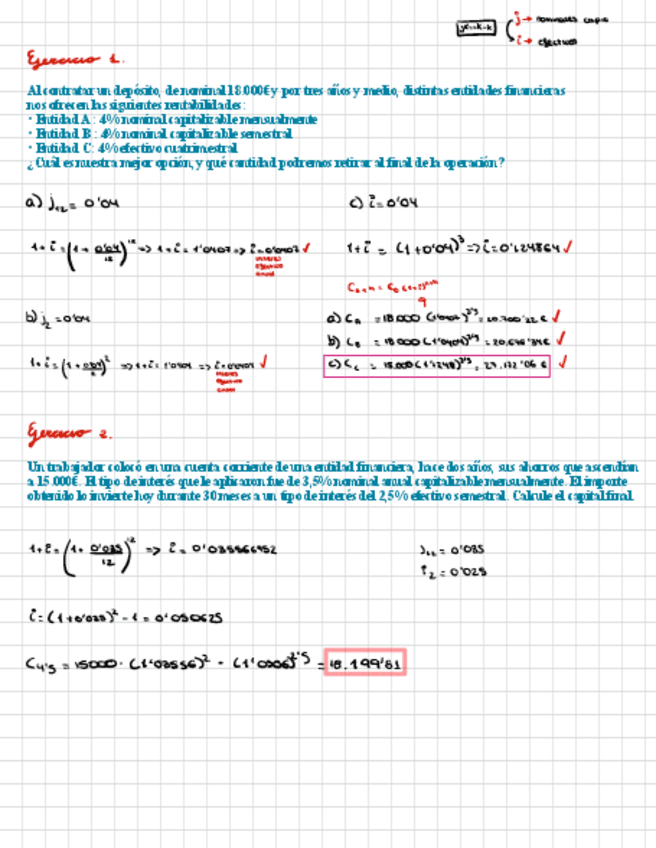 j → nominales
i → efectivos
Ejercicio 1.
Al contratar un depósito, de nominal 18.000€ y por tres años y medio, distintas entidades financieras
nos ofrecen las siguientes rentabilidades:
· Entidad A : 4% nominal capitalizable mensualmente
· Entidad B : 4% nominal capitalizable semestral
· Entidad C: 4% efectivo cuatrimestral
¿Cuál es nuestra mejor opción, y qué cantidad podremos retirar al final de la operación?
a) j₁₂ = 0'04
c) i = 0'04
1+i = (1 + 0'04/12)¹² => 1+i = 1'0407 => i = 0'0407 ✓
interés
efectivo
anual
1+i = (1+0'04)³ => i = 0'124864 ✓
b) j₂ = 0'04
a) C_A = 18000 (1'0407)³'⁵ = 20.700'22 € ✓
b) C_B = 18000 (1'0404)³'⁵ =
1+i = (1+ 0'04/2)² => 1+i = 1'0404 => i = 0'0404 ✓
interés
efectivo
anual
c) C_C =
Ejercicio 2.
Un trabajador colocó en una cuenta corriente de una entidad financiera, hace dos años, sus ahorros que ascendían
a 15.000€. El tipo de interés que le aplicaron fue de 3,5% nominal anual capitalizable mensualmente. El importe
obtenido lo invierte hoy durante 30 meses a un tipo de interés del 2,5% efectivo semestral. Calcule el capital final.
1+i = (1+ 0'035/12)¹² => i = 0'035566952
j₁₂ = 0'035
i₂ = 0'025
i = (1+0'025)² - 1 = 0'050625
C₄'₅ = 15000 · (1'03556)² · (1'0506)²'⁵ = 18.199'81